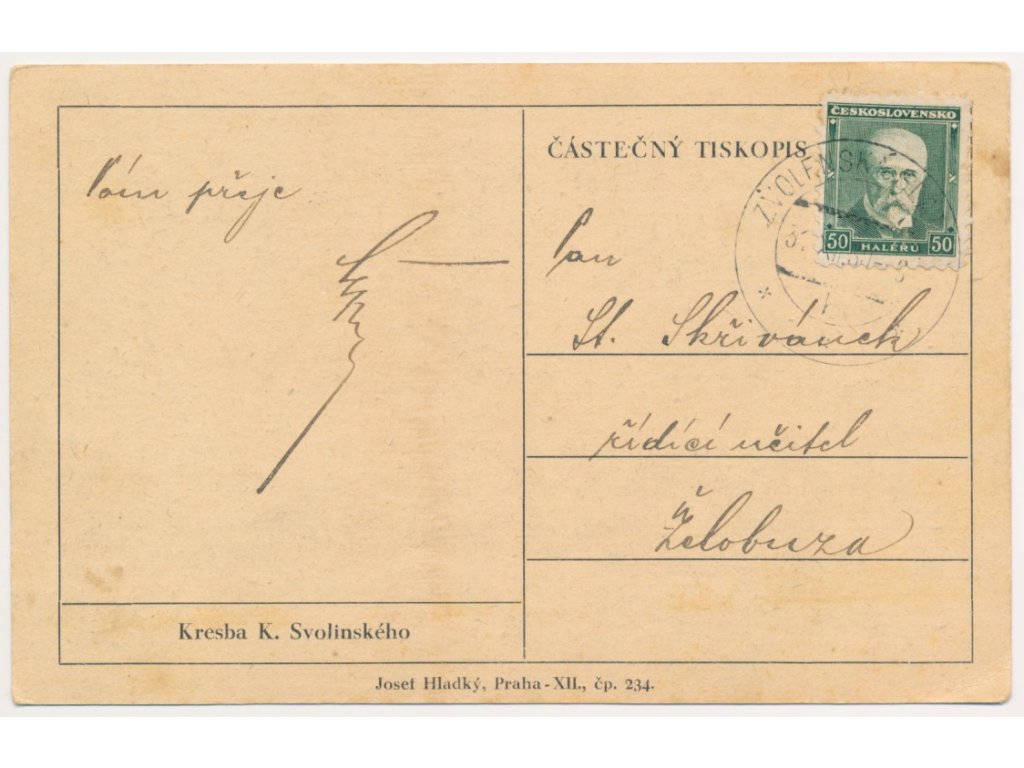 Vám přeje
Kresba K. Svolinského
Josef Hladký, Praha-XII., čp. 234.
ČÁSTEČNÝ TISKOPIS
ČESKOSLOVENSKO
50 HALÉRŮ 50
ZVOLENSK
Pan
St. Skřivánek
řídící učitel
Želobuza